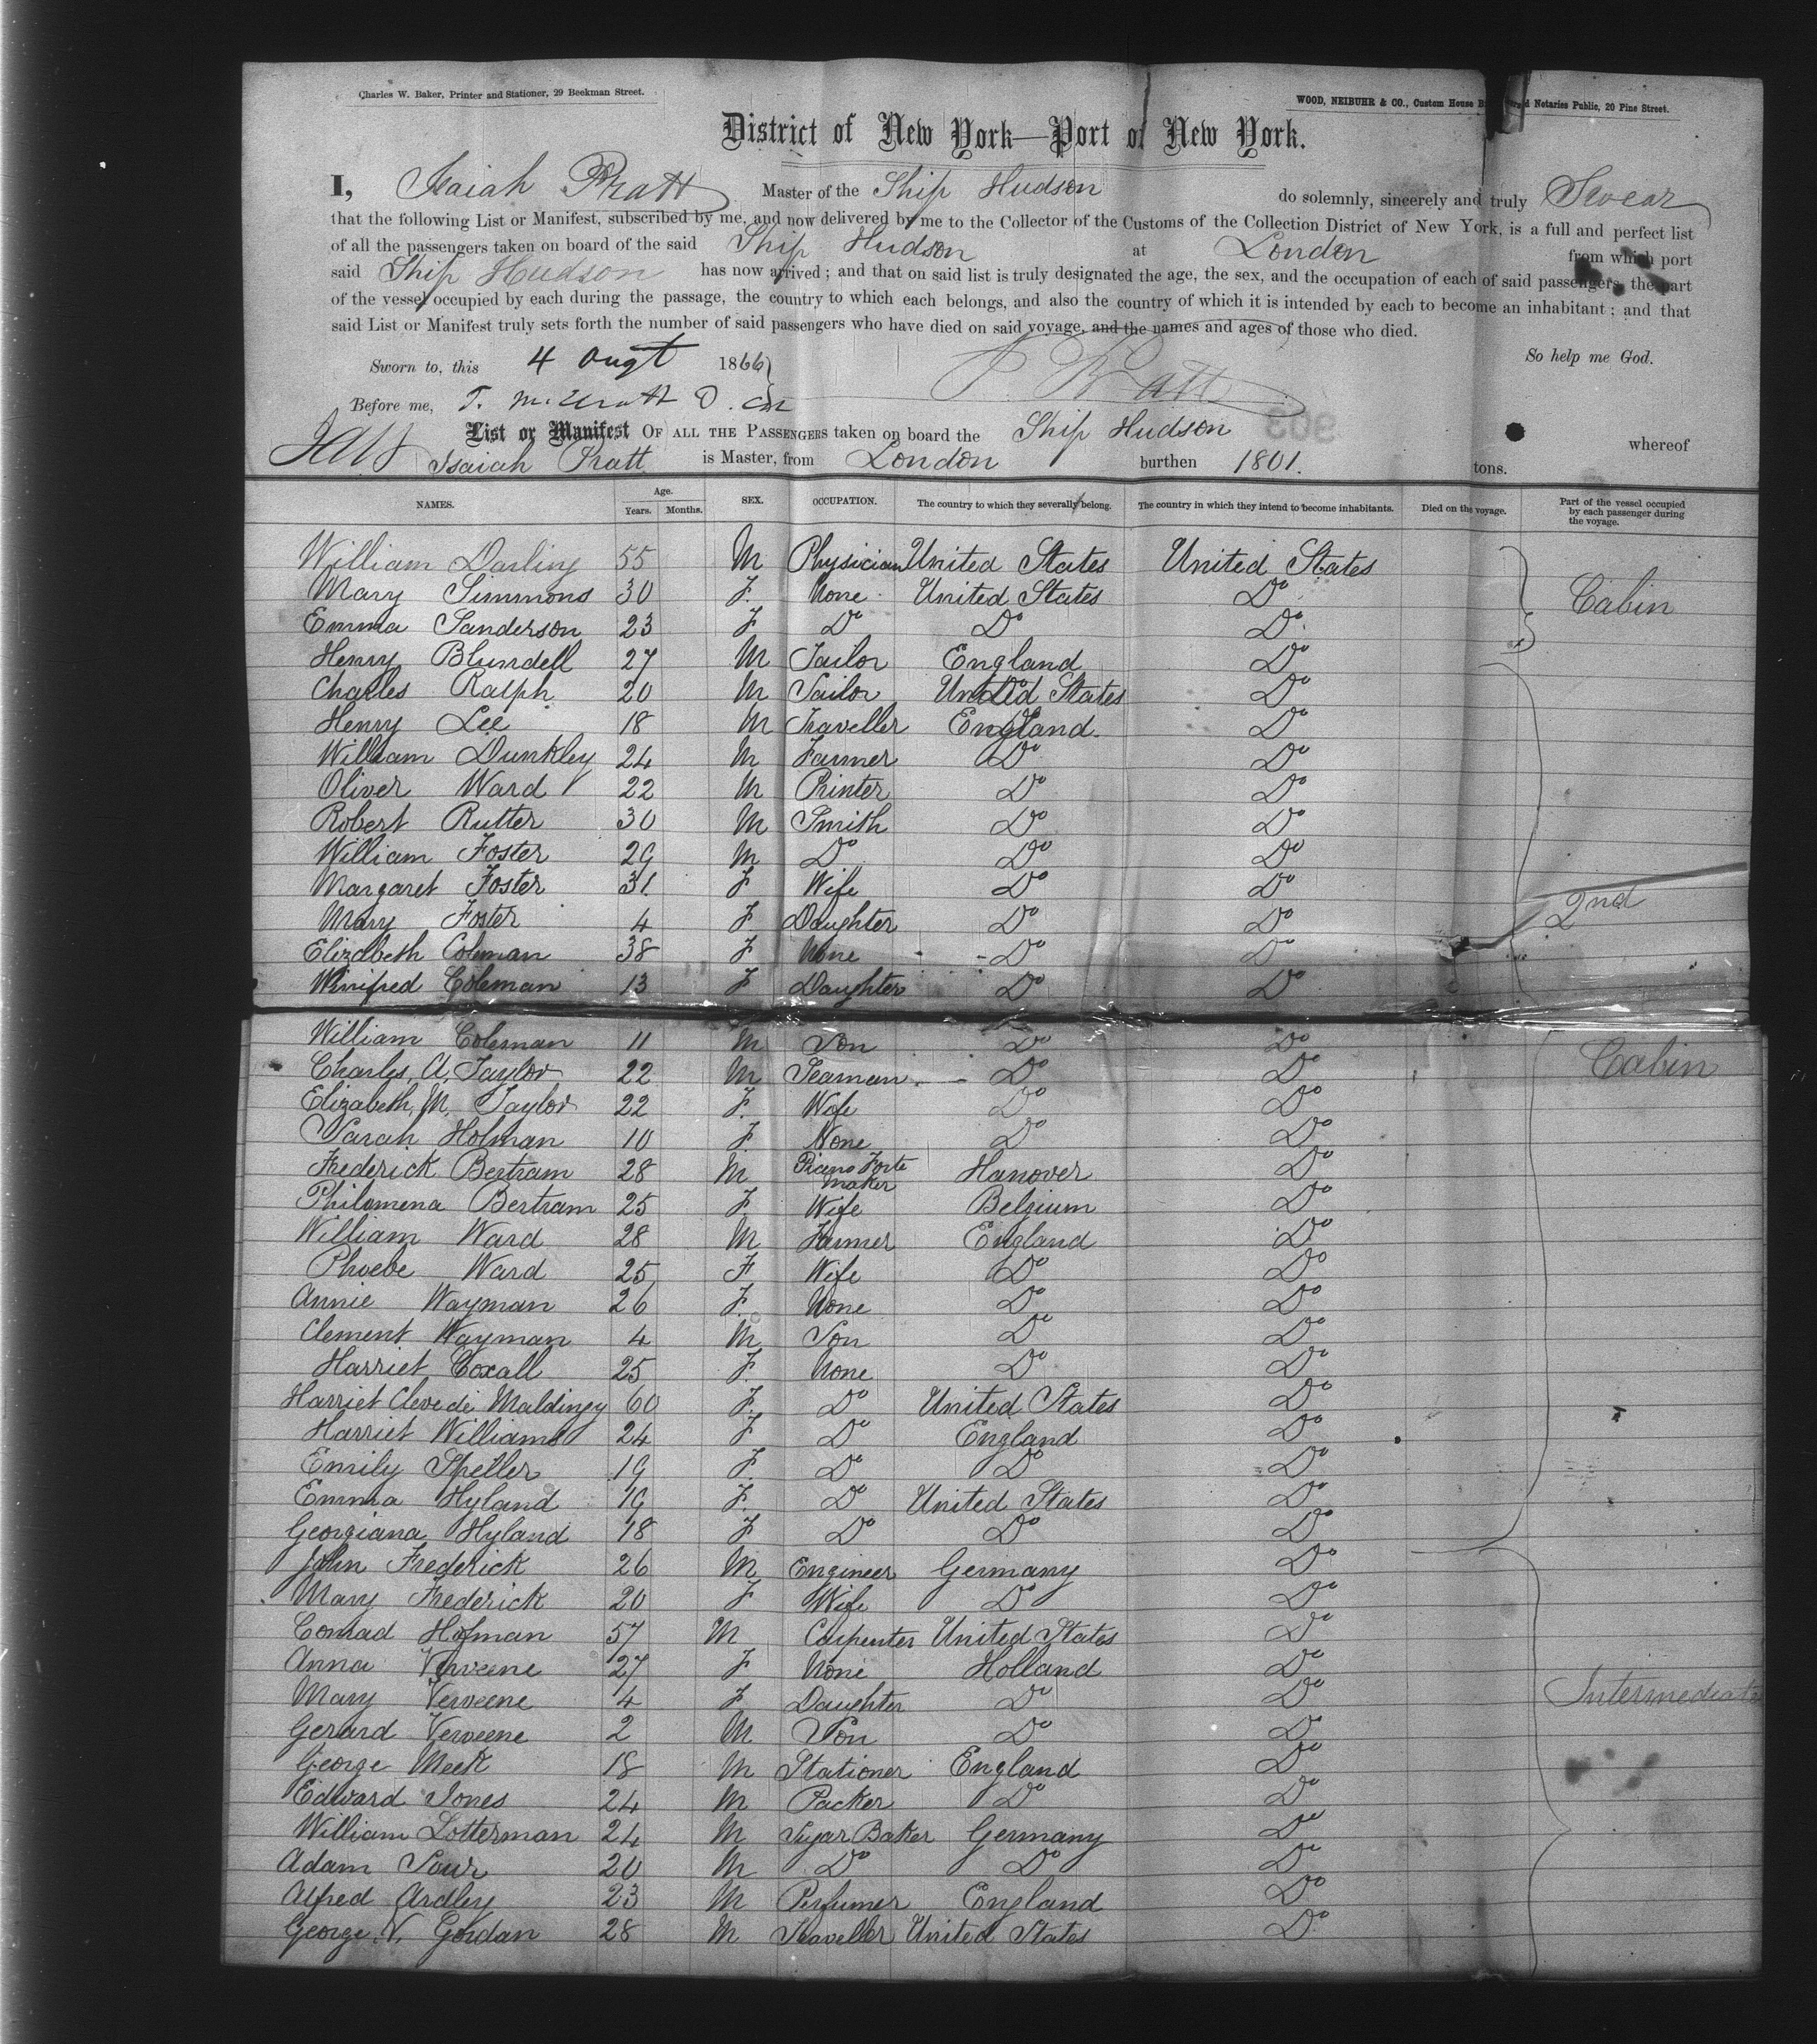 Charles W. Baker, Printer and Stationer, 29 Beekman Street.
WOOD, NEIBUHR & CO., Custom House Notaries Public, 20 Pine Street.
District of New York—Port of New York.
I, Isaiah Pratt Master of the Ship Hudson do solemnly, sincerely and truly Swear
that the following List or Manifest, subscribed by me, and now delivered by me to the Collector of the Customs of the Collection District of New York, is a full and perfect list
of all the passengers taken on board of the said Ship Hudson at London from which port
said Ship Hudson has now arrived; and that on said list is truly designated the age, the sex, and the occupation of each of said passengers, the part
of the vessel occupied by each during the passage, the country to which each belongs, and also the country of which it is intended by each to become an inhabitant; and that
said List or Manifest truly sets forth the number of said passengers who have died on said voyage, and the names and ages of those who died.
So help me God.
Sworn to, this 4 Augt 1866
I. Pratt
Before me,
List or Manifest OF ALL THE PASSENGERS taken on board the Ship Hudson whereof
Isaiah Pratt is Master, from London burthen 1801. tons.
NAMES. Age. Years. Months. SEX. OCCUPATION. The country to which they severally belong. The country in which they intend to become inhabitants. Died on the voyage. Part of the vessel occupied by each passenger during the voyage.
William Darling 55 M Physician United States United States
Mary Simmons 30 F. None United States Do Cabin
Emma Sanderson 23 F Do Do Do
Henry Blundell 27 M Tailor England Do
Charles Ralph 20 M Sailor United States Do
Henry Lee 18 M Traveller England Do
William Dunkley 24 M Farmer Do Do
Oliver Ward 22 M Printer Do Do
Robert Rutter 30 M Smith Do Do
William Foster 29 M Do Do Do
Margaret Foster 31 F Wife Do Do
Mary Foster 4 F Daughter Do Do 2nd
Elizabeth Coleman 38 F None Do Do
Winifred Coleman 13 F Daughter Do Do
William Coleman 11 M Son Do Do Cabin
Charles, A, Taylor 22 M Seaman Do Do
Elizabeth, M, Taylor 22 F. Wife Do Do
Sarah Holman 10 F. None Do Do
Frederick Bertram 28 M Piano Forte Maker Hanover Do
Philomena Bertram 25 F. Wife Belgium Do
William Ward 28 M Farmer England Do
Phoebe Ward 25 F Wife Do Do
Annie Wayman 26 F. None Do Do
Clement Wayman 4 M Son Do Do
Harriet Coxall 25 F. None Do Do
Harriet 60 F. Do United States Do
Harriet Williams 24 F Do England Do
Emily Speller 19 F. Do Do Do
Emma Hyland 19 F. Do United States Do
Georgiana Hyland 18 F Do Do Do
John Frederick 26 M Engineer Germany Do
Mary Frederick 20 F Wife Do Do
Conrad Hofman 57 M Carpenter United States Do
Anna Verveene 27 F None Holland Do
Mary Verveene 4 F Daughter Do Do Intermediate
Gerard Verveene 2 M Son Do Do
George Meek 18 M Stationer England Do
Edward Jones 24 M Packer Do Do
William Lotterman 24 M Sugar Baker Germany Do
Adam Sour 20 M Do Do Do
Alfred Ardley 23 M Perfumer England Do
George N. Gordan 28 M Traveller United States Do